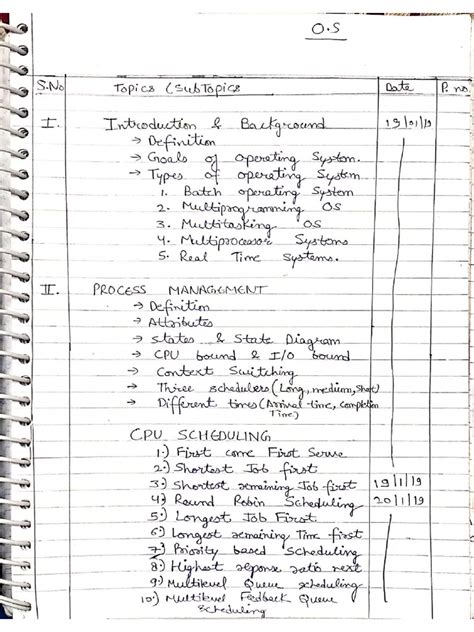 O.S
S.No Topics (SubTopics Date P. no.
I. Introduction & Background 19/01/19
→ Definition
→ Goals of operating System.
→ Types of operating System
1. Batch operating System
2. Multiprogramming OS
3. Multitasking OS
4. Multiprocessor Systems
5. Real Time Systems.
II. PROCESS MANAGEMENT
→ Definition
→ Attributes
→ States & State Diagram
→ CPU bound & I/O bound
→ Context Switching
→ Three schedulers (Long, medium, Short)
→ Different times (Arrival time, completion
Time)
CPU SCHEDULING
1.) First come First Serve
2.) Shortest Job first
3.) Shortest remaining Job first 19/1/19
4.) Round Robin Scheduling 20/1/19
5.) Longest Job First
6.) Longest remaining Time first
7.) Priority based Scheduling
8.) Highest reponse ratio next
9.) Multilevel Queue scheduling
10.) Multilevel Feedback Queue
Scheduling